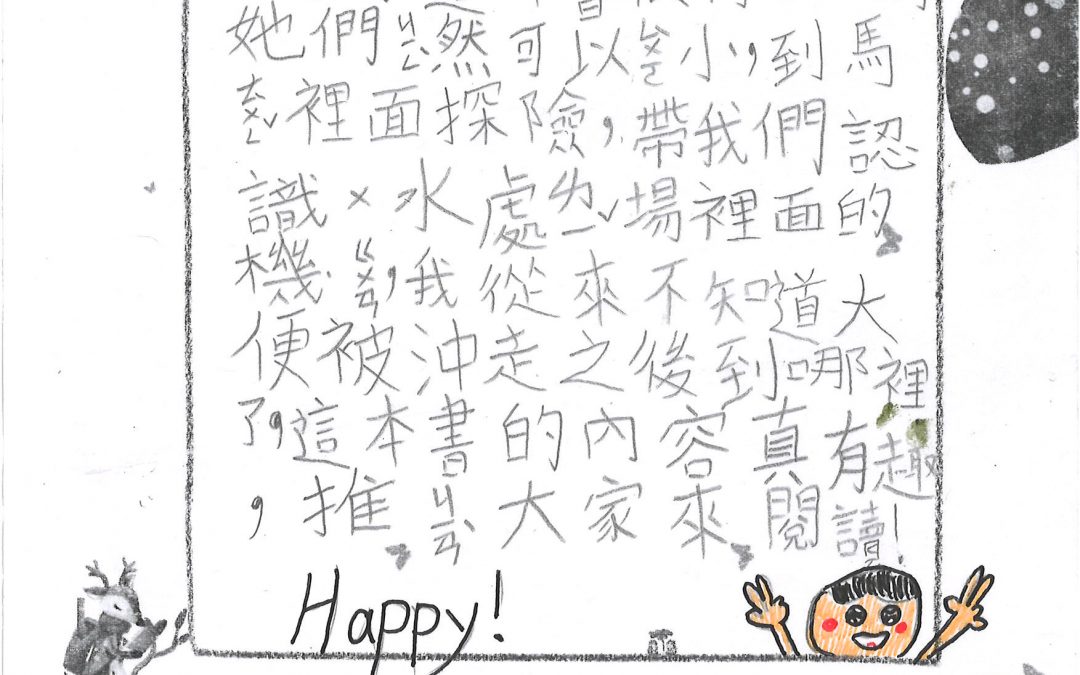 她們然可以小,到馬
ㄊㄨㄥˇ裡面探險,帶我們認
識×水處ㄌㄧˇ場裡面的
機ㄍㄨㄢ,我從來不知道大
便被沖走之後到哪裡
了,這本書的內容真有趣
,推ㄐㄧㄢ大家來閱讀!
Happy!